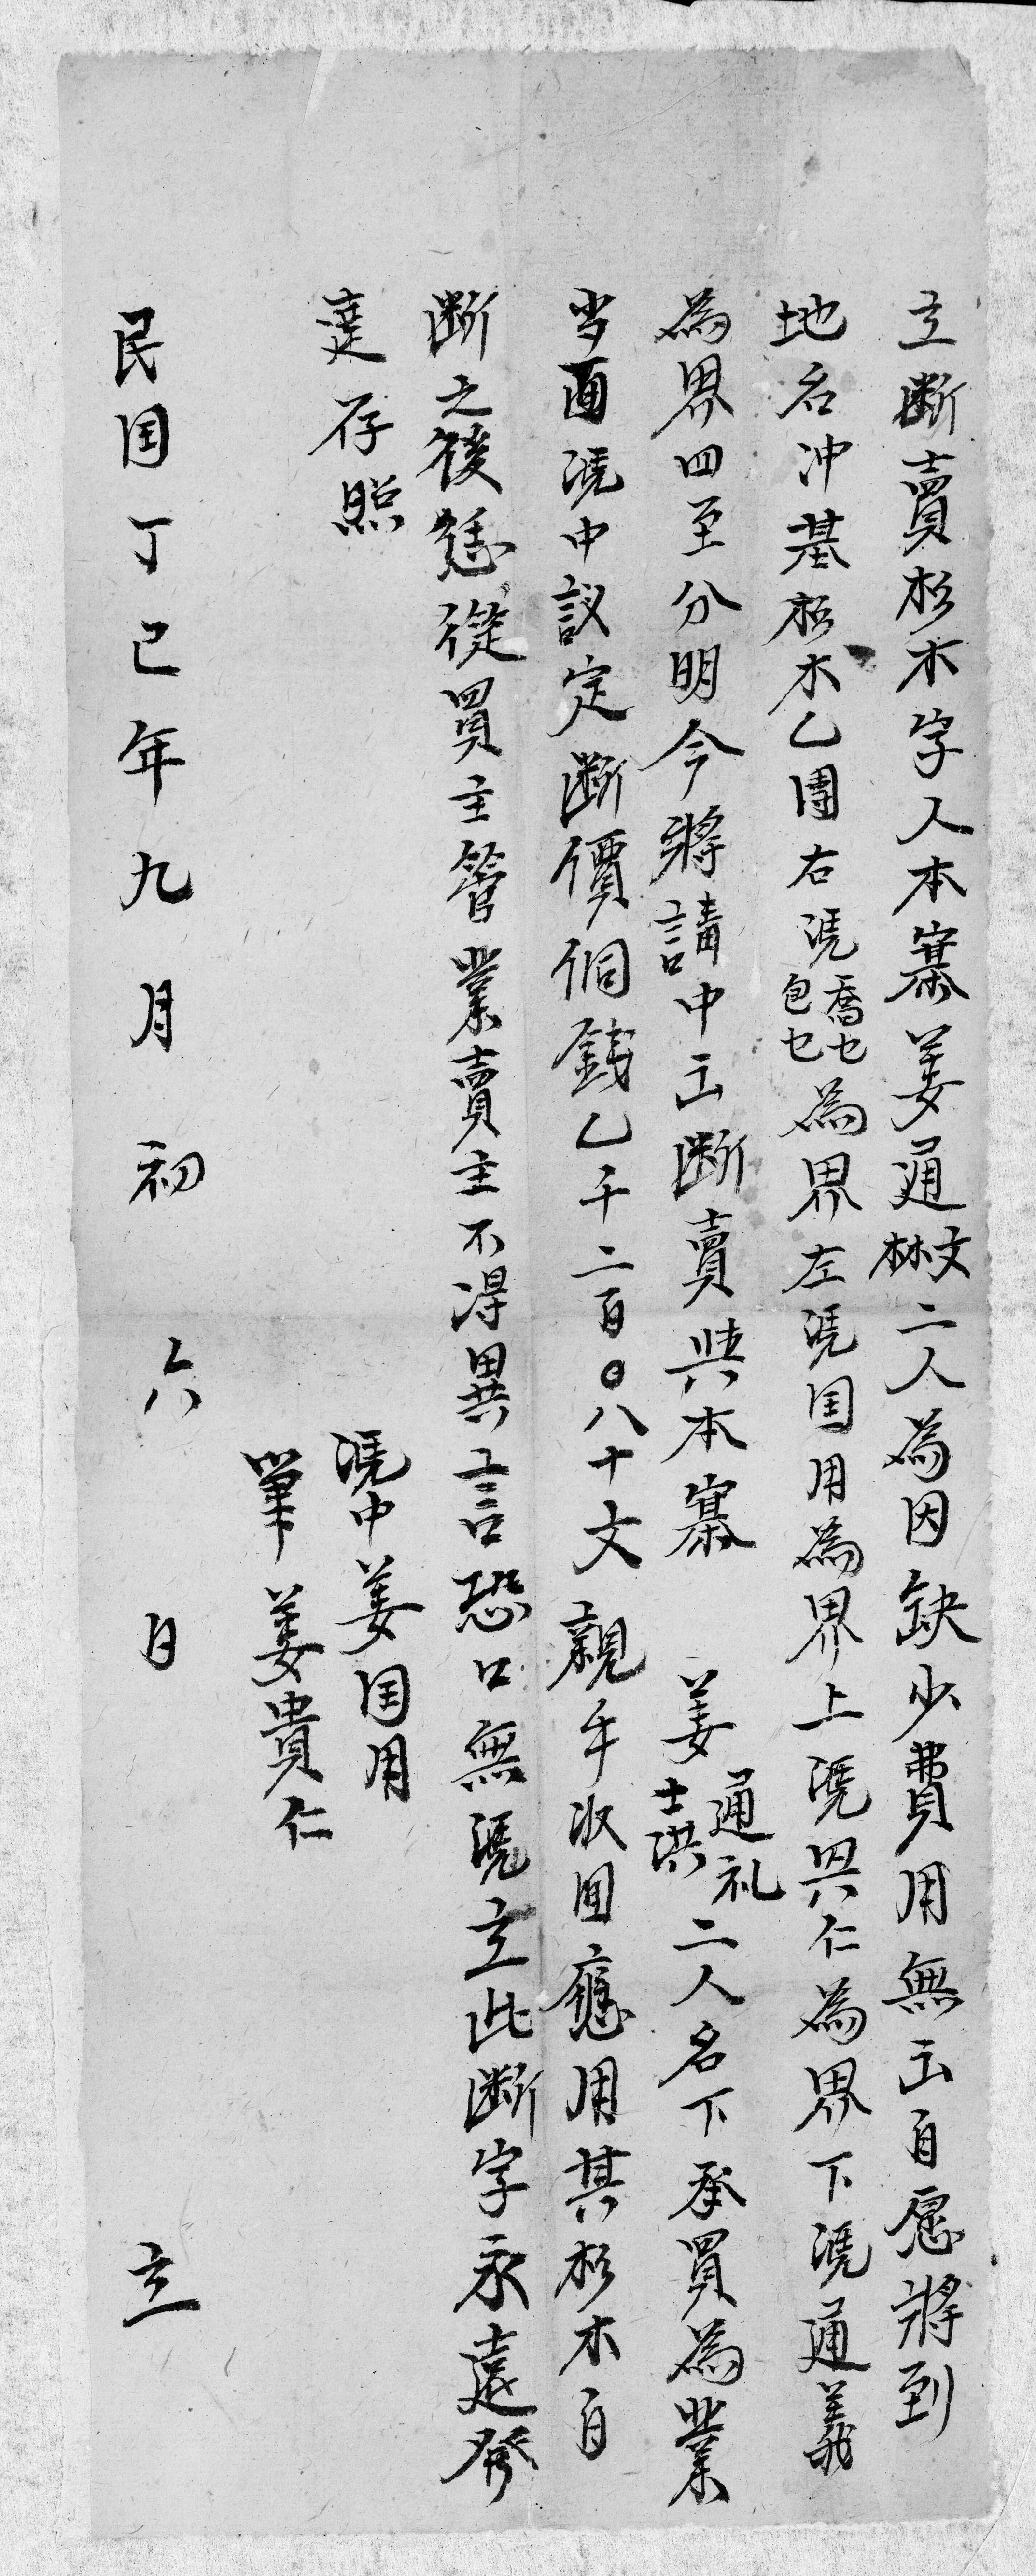 立断賣杉木字人本寨姜通文林二人為因缺少費用無出自愿將到
地名冲基杉木乙團右凴喬乜包乜為界左凴国用為界上凴興仁為界下凴通義
為界四至分明今將請中出断賣與本寨姜通礼士洪二人名下承買為業
当面凴中議定断價侗錢乙千二百〇八十文親手收回應用其杉木自
断之後恁從買主管業賣主不淂異言恐口無凴立此断字永遠發
達存照
凴中姜国用
筆姜貴仁
民国丁巳年九月初六日立